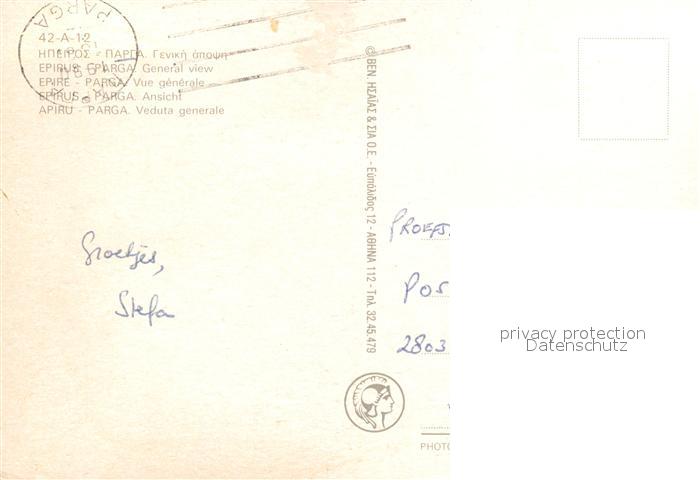 PARGA
42-A-12
ΗΠΕΙΡΟΣ - ΠΑΡΓΑ. Γενική άποψη
EPIRUS - PARGA. General view
EPIRE - PARGA. Vue générale
EPIRUS - PARGA. Ansicht
APIRU - PARGA. Veduta generale
© ΒΕΝ. ΗΣΑΪΑΣ & ΣΙΑ Ο.Ε. - Εὐπόλιδος 12 - ΑΘΗΝΑ 112 - Τηλ. 32.45.479
Groetjes,
Stefa
PROEFS
POS
2803
privacy protection
Datenschutz
PHOTO